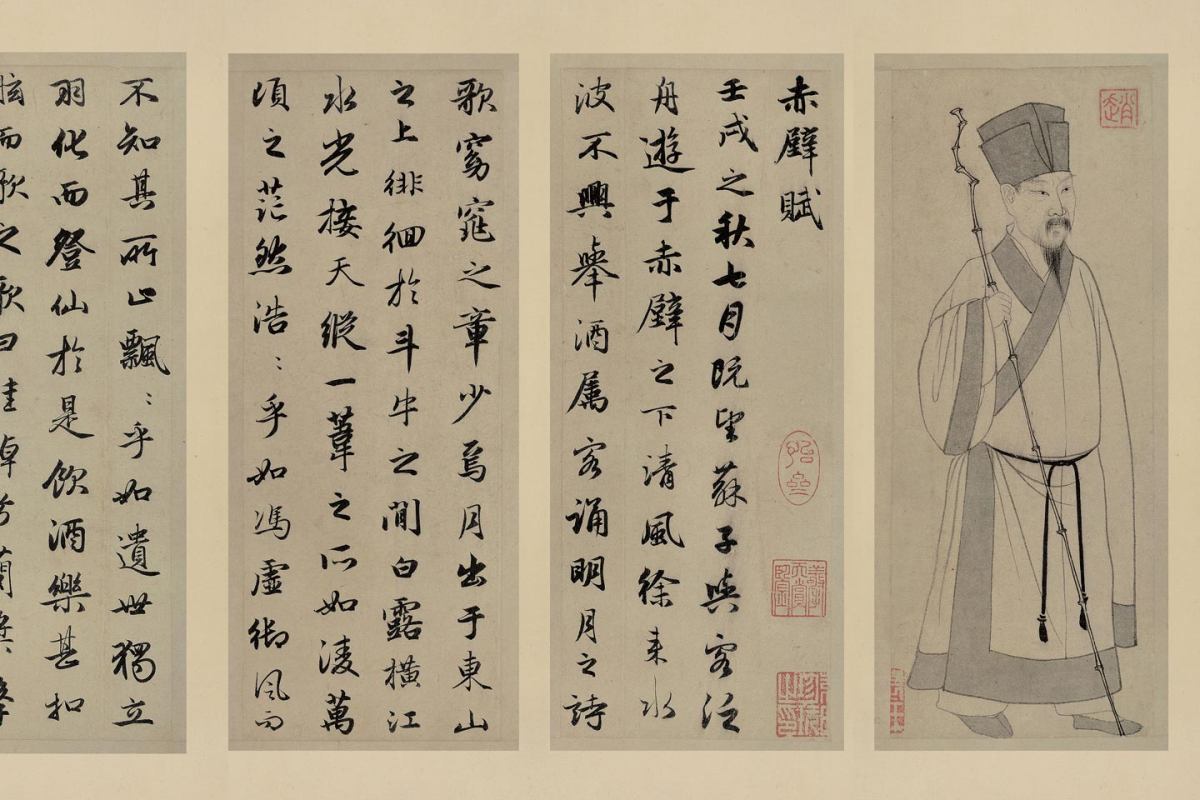 趙
赤壁賦
壬戌之秋七月既望蘇子與客泛
舟遊于赤壁之下清風徐来水
波不興舉酒属客誦明月之詩
歌窈窕之章少焉月出于東山
之上徘徊於斗牛之間白露橫江
水光接天縱一葦之所如凌萬
頃之茫然浩〻乎如馮虛御風而
不知其所止飄〻乎如遺世獨立
羽化而登仙於是飲酒樂甚扣
舷而歌之歌曰桂棹兮蘭槳擊